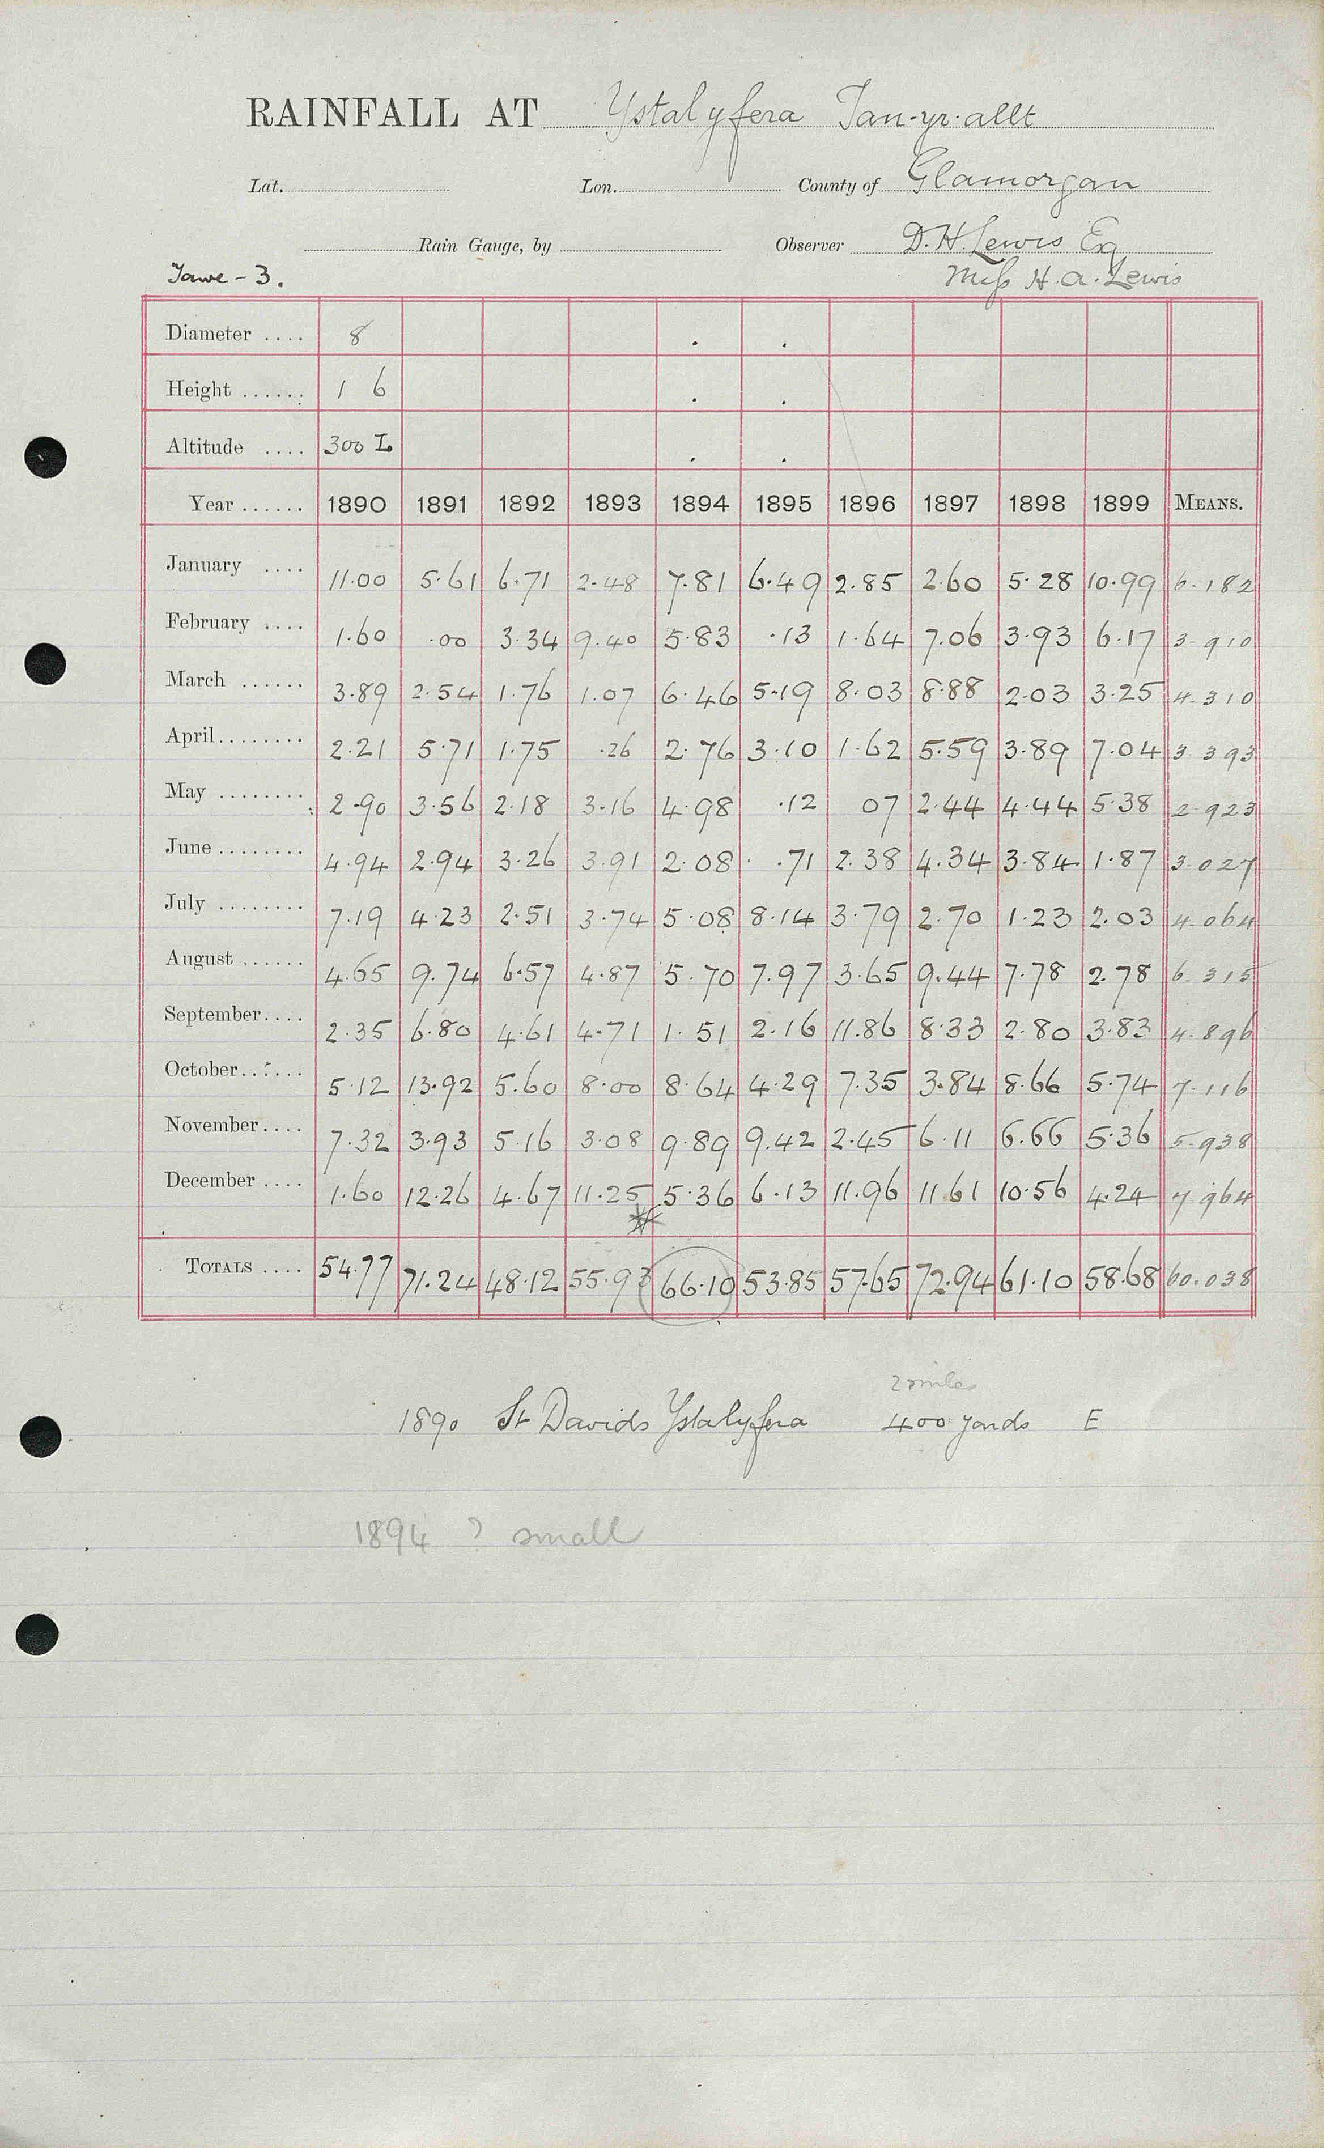 RAINFALL AT Ystalyfera Tan-yr-allt
Lat. Lon. County of Glamorgan
Rain Gauge, by Observer D.H. Lewis Esq
Tawe - 3. Miss H.A. Lewis
Diameter .... 8
Height ...... 1 6
Altitude .... 300 L
Year ...... 1890 1891 1892 1893 1894 1895 1896 1897 1898 1899 MEANS.
January .... 11.00 5.61 6.71 2.48 7.81 6.49 2.85 2.60 5.28 10.99 6.182
February .... 1.60 .00 3.34 9.40 5.83 .13 1.64 7.06 3.93 6.17 3.910
March ...... 3.89 2.54 1.76 1.07 6.46 5.19 8.03 8.88 2.03 3.25 4.310
April........ 2.21 5.71 1.75 .26 2.76 3.10 1.62 5.59 3.89 7.04 3.393
May ........ 2.90 3.56 2.18 3.16 4.98 .12 07 2.44 4.44 5.38 2.923
June ........ 4.94 2.94 3.26 3.91 2.08 .71 2.38 4.34 3.84 1.87 3.027
July ........ 7.19 4.23 2.51 3.74 5.08 8.14 3.79 2.70 1.23 2.03 4.064
August ...... 4.65 9.74 6.57 4.87 5.70 7.97 3.65 9.44 7.78 2.78 6.315
September.... 2.35 6.80 4.61 4.71 1.51 2.16 11.86 8.33 2.80 3.83 4.896
October...... 5.12 13.92 5.60 8.00 8.64 4.29 7.35 3.84 8.66 5.74 7.116
November.... 7.32 3.93 5.16 3.08 9.89 9.42 2.45 6.11 6.66 5.36 5.938
December .... 1.60 12.26 4.67 11.25 5.36 6.13 11.96 11.61 10.56 4.24 7.964
TOTALS .... 54.77 71.24 48.12 55.93 66.10 53.85 57.65 72.94 61.10 58.68 60.038
2 miles
1890 St Davids Ystalyfera 400 yards E
1894 ? small